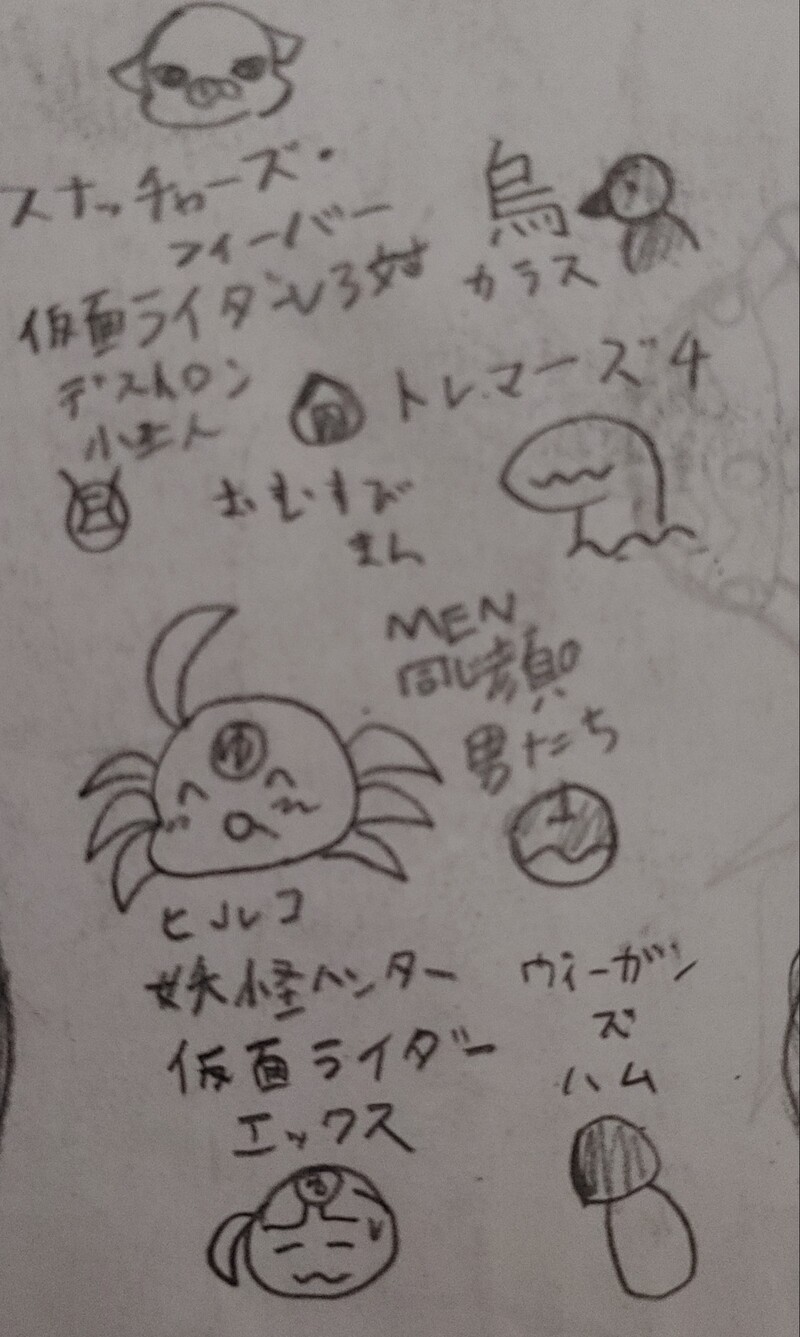 スナッチャーズ・
フィーバー
烏
カラス
仮面ライダーV3対
デストロン
トレマーズ4
おむすび
まん
MEN
同じ顔の
男たち
ゆ
ヒルコ
妖怪ハンター
仮面ライダー
エックス
ウィーガン
ズ
ハム